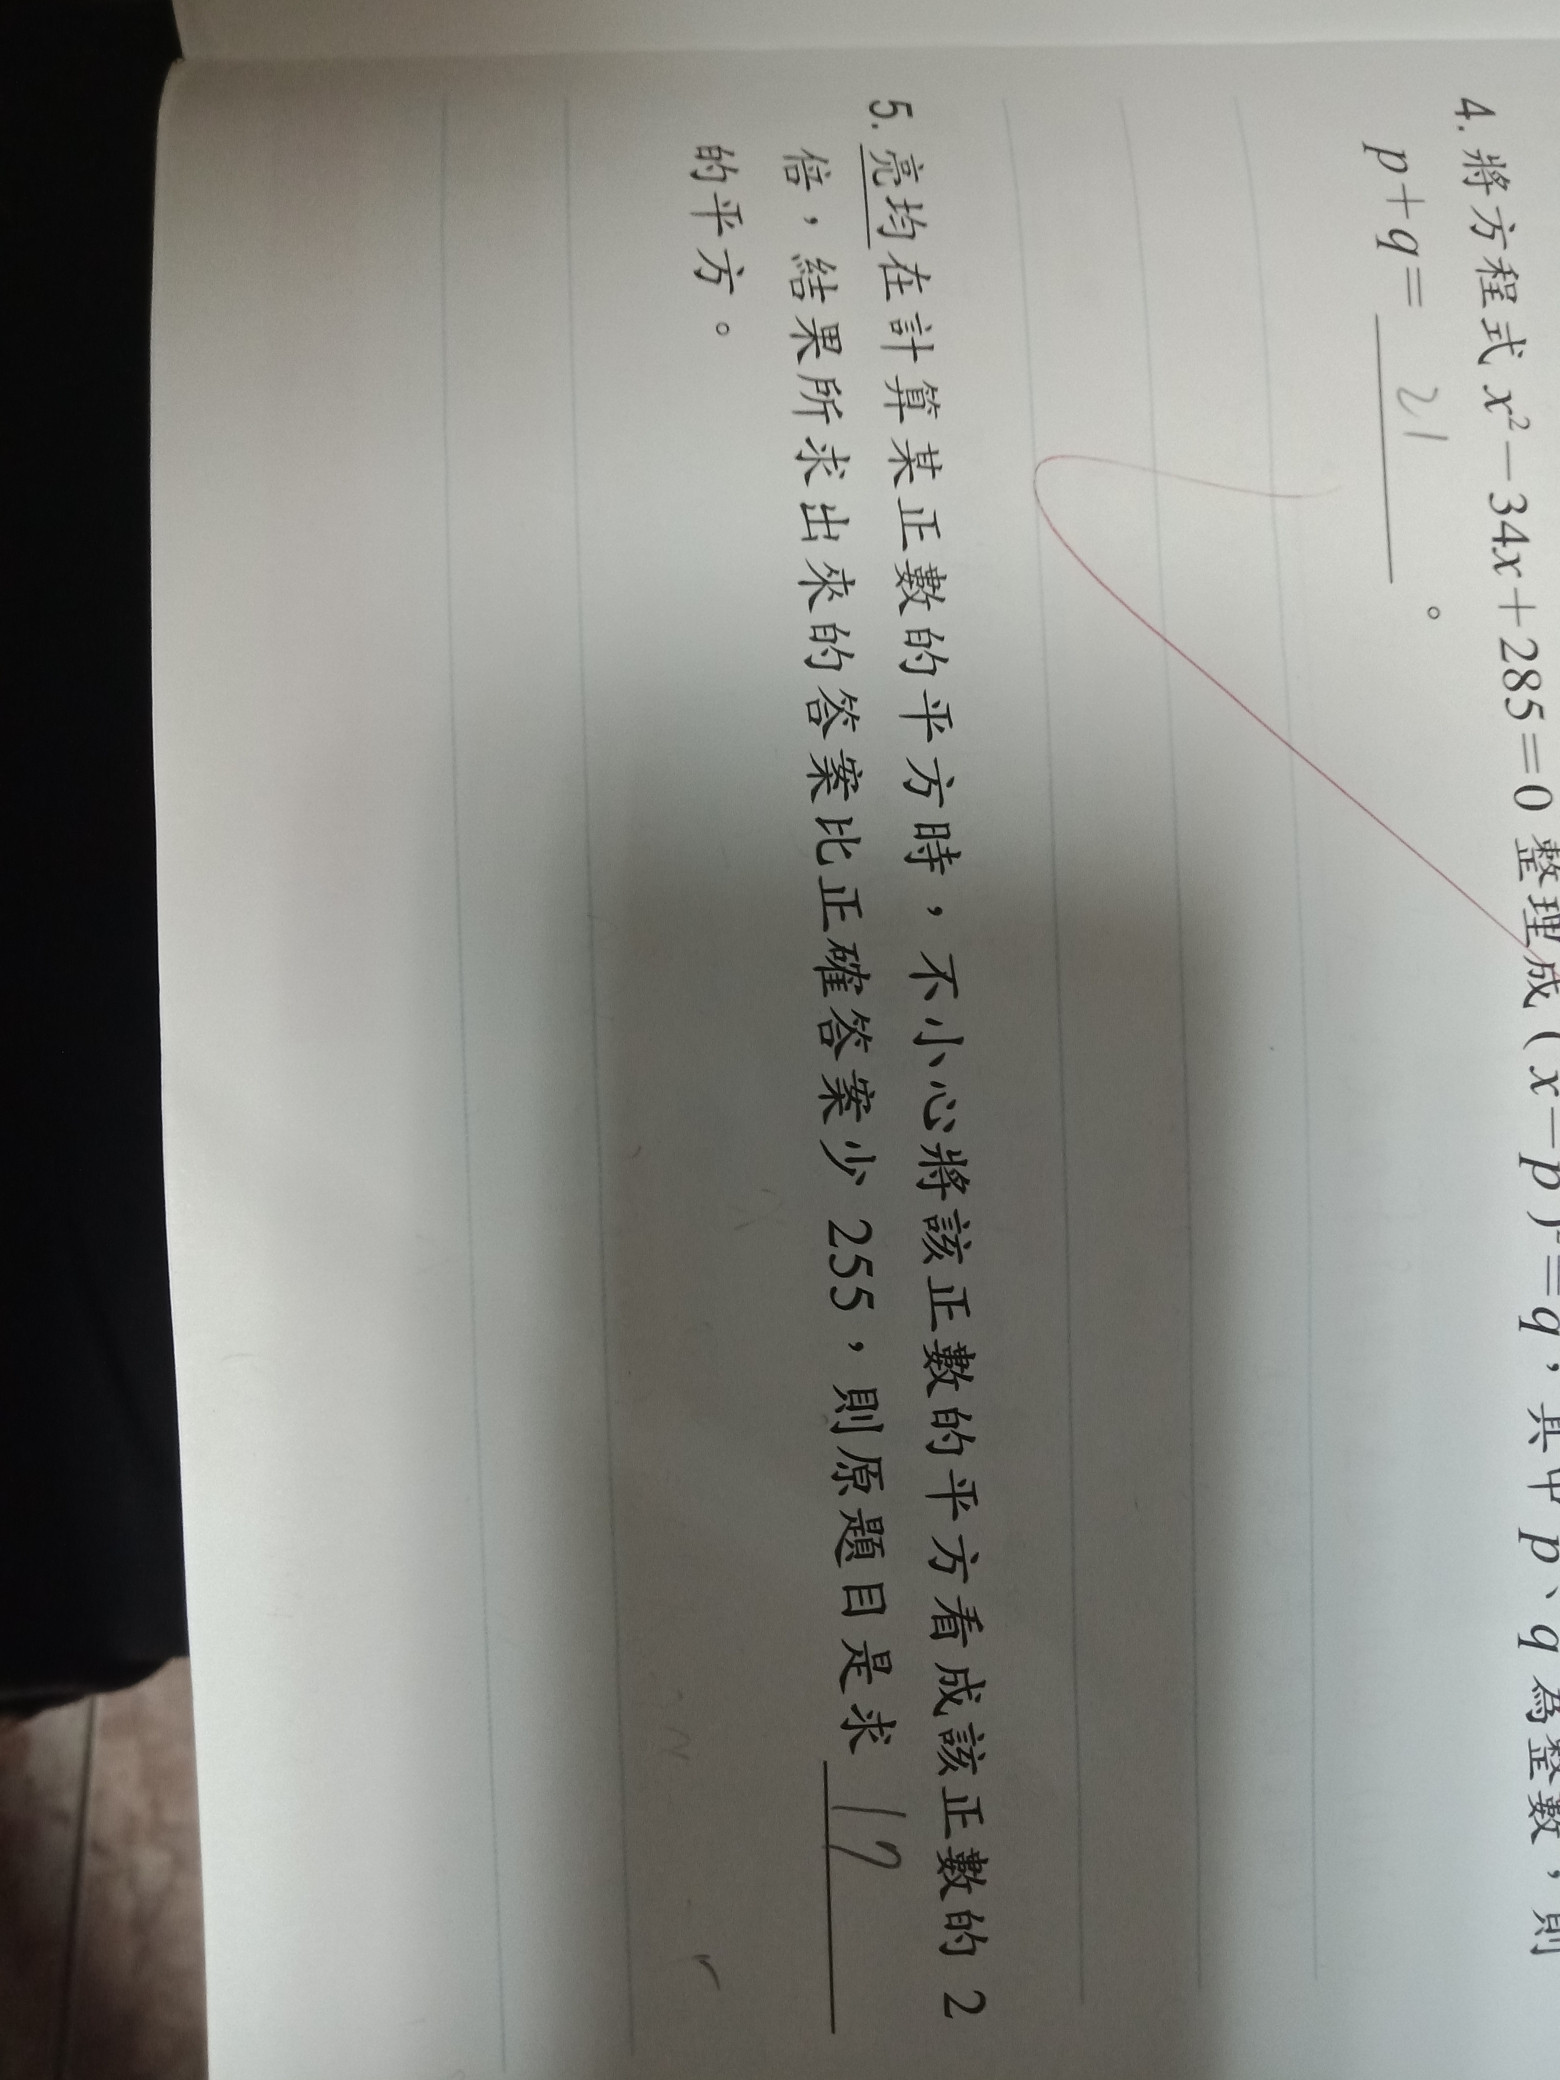 4. 將方程式 x²－34x＋285＝0 整理成 (x－p)²＝q，其中 p、q 為整數，則
p＋q＝ 21 。
5. 亮均在計算某正數的平方時，不小心將該正數的平方看成該正數的 2
倍，結果所求出來的答案比正確答案少 255，則原題目是求 17
的平方。